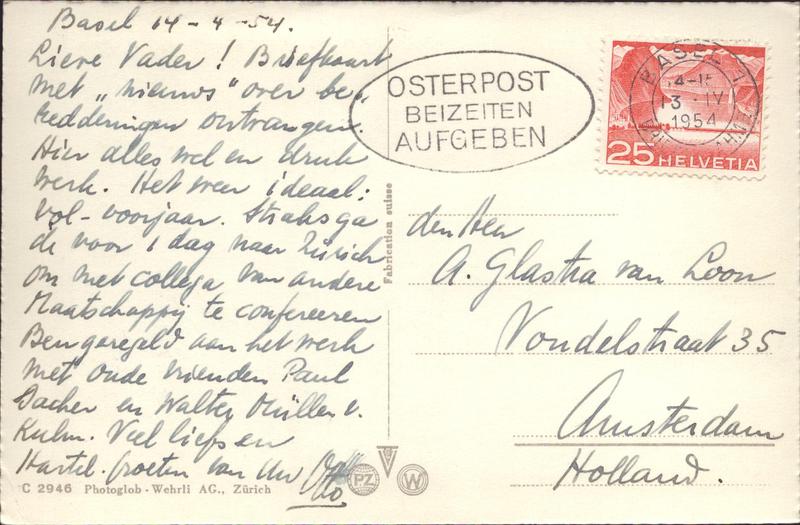 Basel 14-4-54.
Lieve Vader! Briefkaart
met „nieuws" over be„
redderingen ontvangen.
Hier alles wel en druk
werk. Het weer ideaal:
vol-voorjaar. Straks ga
ik voor 1 dag naar Zürich
om met collega van andere
Maatschappij te confereeren
Ben geregeld aan het werk
met oude vrienden Paul
Bacher en Walter Müller v.
Kulm. Veel liefs en
Hartel. Groeten van Uw Otto
C 2946 Photoglob-Wehrli AG., Zürich
Fabrication suisse
PZ
W
OSTERPOST
BEIZEITEN
AUFGEBEN
BASEL 1
14-15
13. IV
1954
25 HELVETIA
den Heer
A. Glastra van Loon
Vondelstraat 35
Amsterdam
Holland.